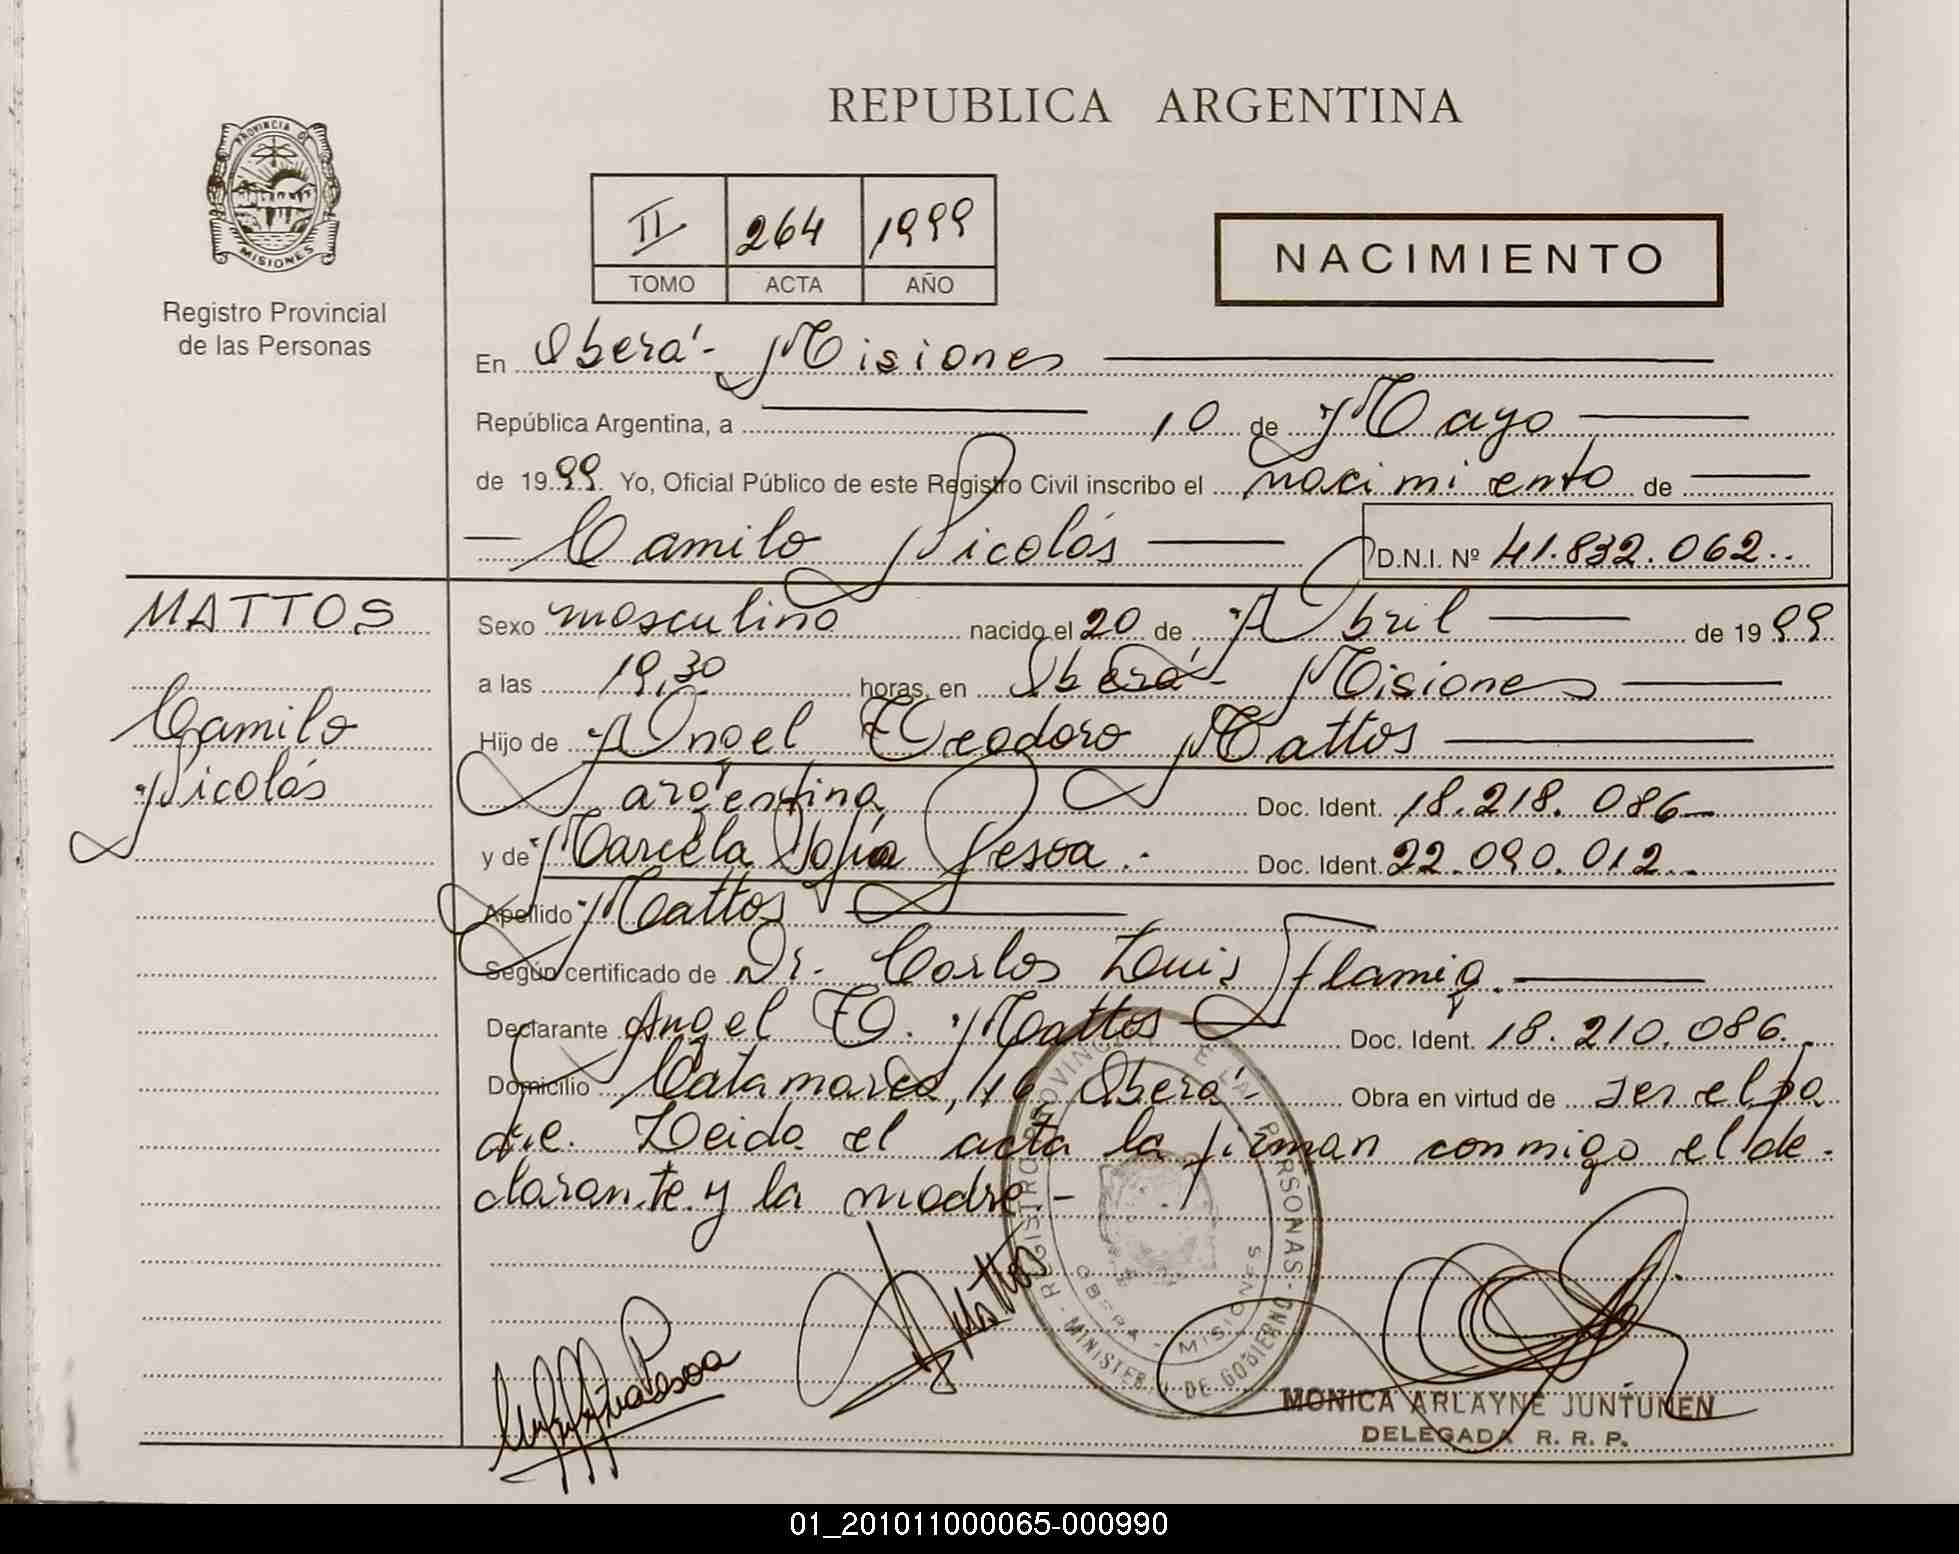 REPUBLICA ARGENTINA
PROVINCIA DE
MISIONES
Registro Provincial
de las Personas
II 264 1999
TOMO ACTA AÑO
NACIMIENTO
En Oberá - Misiones
República Argentina, a 10 de Mayo
de 1999 Yo, Oficial Público de este Registro Civil inscribo el nacimiento de
Camilo Nicolás D.N.I. Nº 41.832.062..
MATTOS
Camilo
Nicolás
Sexo masculino nacido el 20 de Abril de 1999
a las 19,30 horas, en Oberá - Misiones
Hijo de Angel Teodoro Mattos
argentina Doc. Ident. 18.218.086
y de Marcela Sofía Pesoa.- Doc. Ident. 22.090.012..
Apellido Mattos
Según certificado de Dr. Carlos Luis Flamig.
Declarante Angel T. Mattos Doc. Ident. 18.210.086.
Domicilio Catamarca, 16 Oberá - Obra en virtud de ser el pa
dre. Leida el acta la firman conmigo el de-
clarante y la madre.-
REGISTRO PROVINCIAL DE LAS PERSONAS - MINISTERIO DE GOBIERNO
OBERA - MISIONES
Pesoa
Mattos
MONICA ARLAYNE JUNTUNEN
DELEGADA R. R. P.
01_201011000065-000990